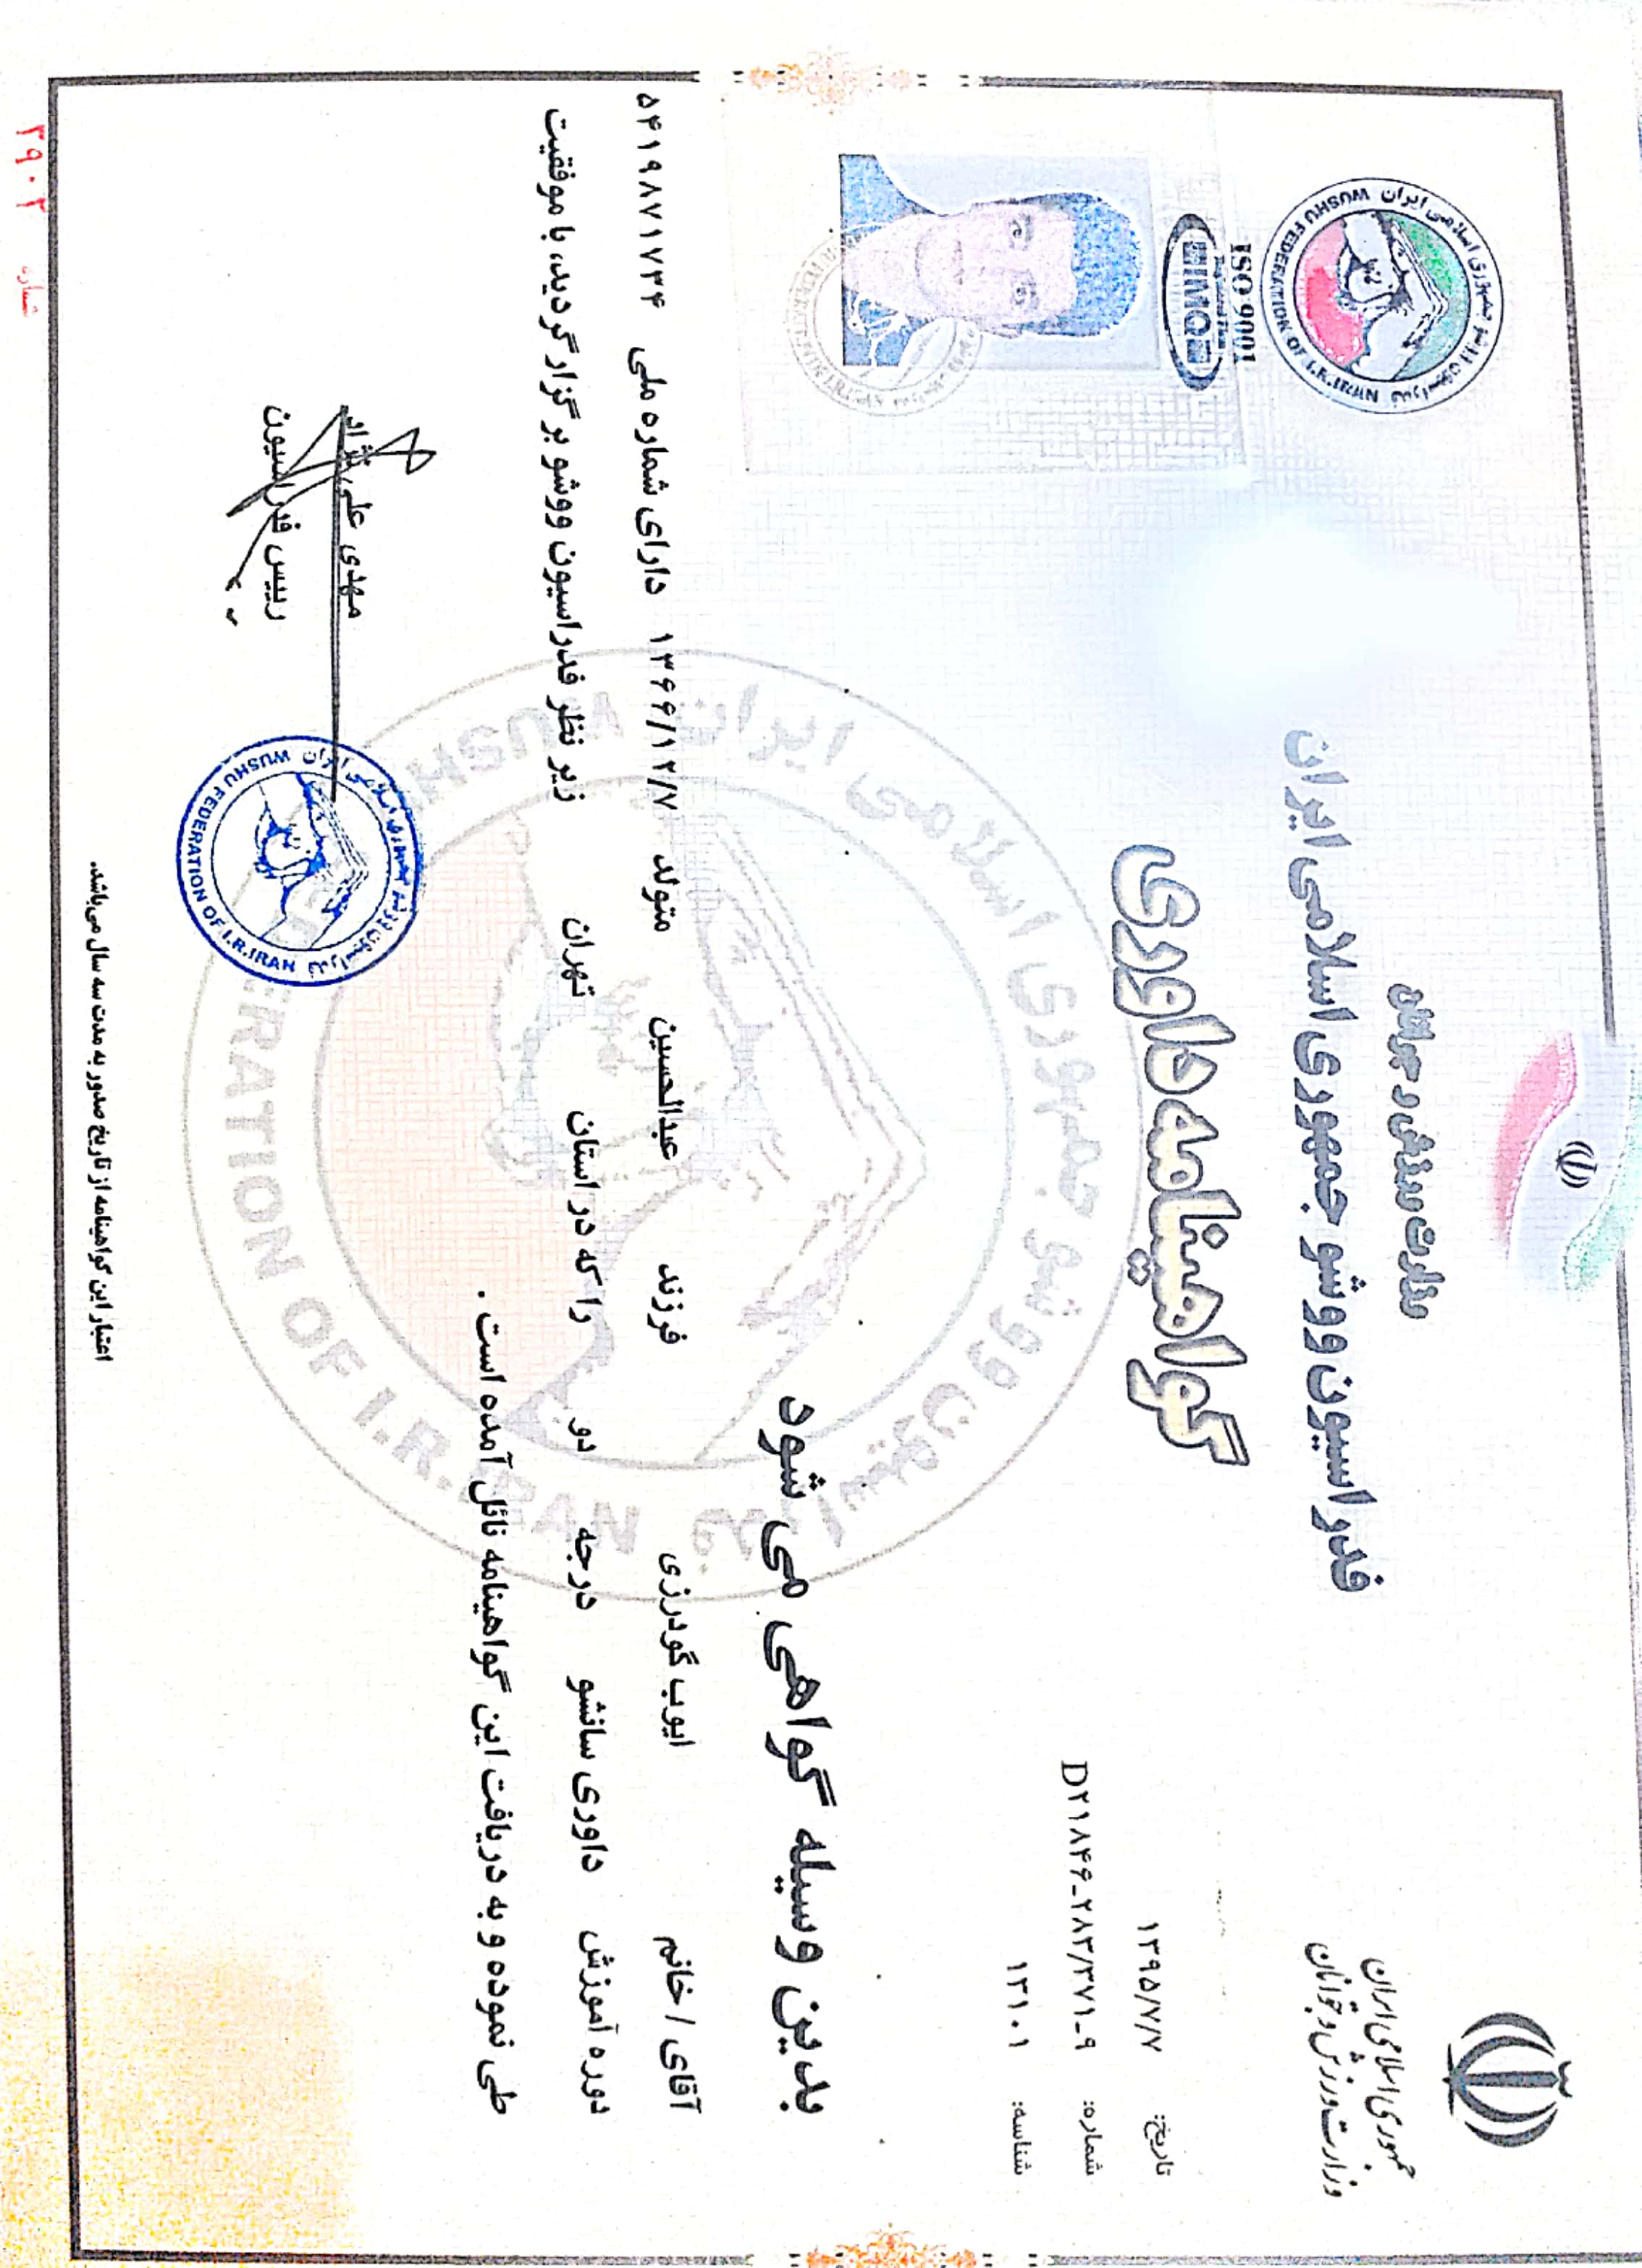 جمهوری اسلامی ایران
وزارت ورزش و جوانان
وزارت ورزش و جوانان
فدراسیون ووشو جمهوری اسلامی ایران
گواهینامه داوری
تاریخ: ۱۳۹۵/۷/۷
شماره: D۲۱۸۴۶-۲۸۳/۳۷۱-۹
شناسه: ۱۳۱۰۱
فدراسیون ووشو جمهوری اسلامی ایران
WUSHU FEDERATION OF I.R.IRAN
ISO 9001
IMQ
بدین وسیله گواهی می شود
آقای / خانم ایوب گودرزی فرزند عبدالحسین متولد ۱۳۶۶/۱۲/۷ دارای شماره ملی ۵۴۱۹۸۷۱۷۳۴
دوره آموزش داوری سانشو درجه دو را که در استان تهران زیر نظر فدراسیون ووشو برگزار گردید، با موفقیت
طی نموده و به دریافت این گواهینامه نائل آمده است .
مهدی علی نژاد
رییس فدراسیون
فدراسیون ووشو جمهوری اسلامی ایران
WUSHU FEDERATION OF I.R.IRAN
اعتبار این گواهینامه از تاریخ صدور به مدت سه سال می‌باشد.
شماره ۲۹۰۲